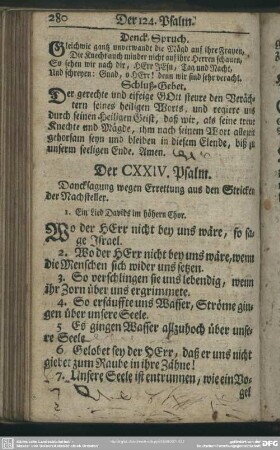 280 Der 124. Psalm.
Denck-Spruch.
Gleichwie gantz unverwandt die Mägd auf ihre Frauen,
Die Knecht auch minder nicht auf ihre Herren schauen,
So sehen wir nach dir, HErr JEsu, Tag und Nacht,
Und schreyen: Gnad, o HErr! denn wir sind sehr veracht.
Schluß-Gebet.
Der gerechte und eifrige GOtt steure den Veräch-
tern seines heiligen Worts, und regiere uns
durch seinen Heiligen Geist, daß wir, als seine treue
Knechte und Mägde, ihm nach seinem Wort allezeit
gehorsam seyn und bleiben in diesem Elende, biß zu
unserm seeligen Ende. Amen.
Der CXXIV. Psalm.
Dancksagung wegen Errettung aus den Stricken
der Nachsteller.
1. Ein Lied Davids im höhern Chor.
Wo der HErr nicht bey uns wäre, so sa-
ge Israel.
2. Wo der HErr nicht bey uns wäre, wenn
die Menschen sich wider uns setzen.
3. So verschlingen sie uns lebendig, wenn
ihr Zorn über uns ergrimmete.
4. So ersäuffte uns Wasser, Ströme gin-
gen über unsere Seele.
5 Es gingen Wasser allzuhoch über unse-
re Seele.
6. Gelobet sey der HErr, daß er uns nicht
giebet zum Raube in ihre Zähne!
7. Unsere Seele ist entrunnen, wie ein Vo-
gel